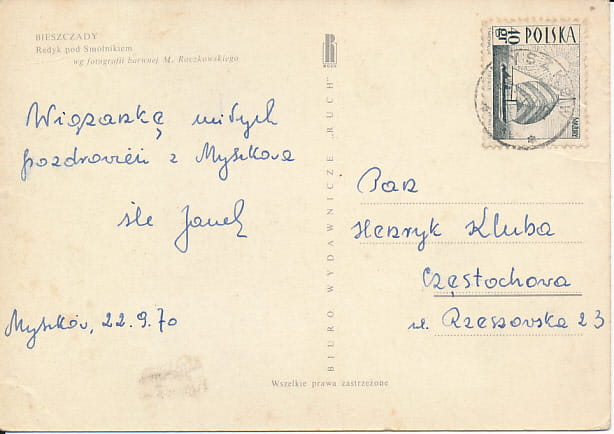 BIESZCZADY
Redyk pod Smolnikiem
wg fotografii barwnej M. Raczkowskiego
Wiązankę miłych
pozdrowień z Myszkowa
śle Janek
Myszków, 22.9.70
BIURO WYDAWNICZE „RUCH"
RUCH
Wszelkie prawa zastrzeżone
40 gr
POLSKA
Pan
Henryk Kluba
Częstochowa
ul. Rzeszowska 23